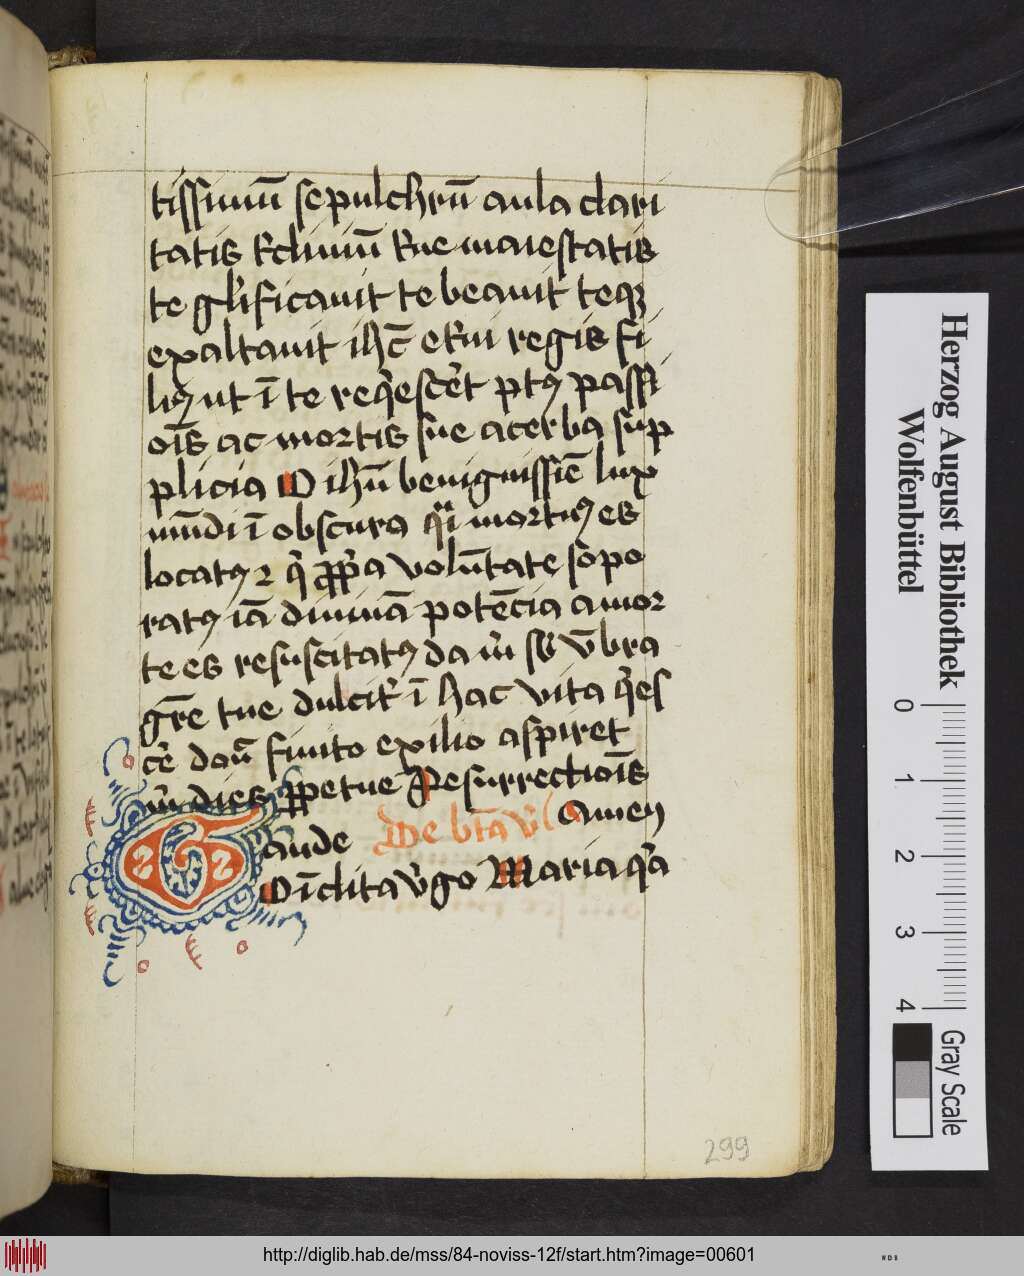 tissimū sepulchrū aula clari
tatis tˀcliniū tue maiestatis
te glˀificauit te beauit teqꝫ
exaltauit ihc̄ etˀni regis fi
liꝰ ut ī te reqͥescēt ptꝰ passi
ois̄ ac mortis sue acerba sup
plicia O ihū benignissīe lux
mūdi ī obscura qͣi mortiꝰ es
locatꝰ ⁊ qͥ ꝓpͥa volūtate sopo
ratꝰ iā diuinā potēcia a mor
te es resuscitatꝰ da m̄ sb̄ vmbra
gre tue dulcitˀ ī hac vita qͥes
cē donͣ finito exilio aspiret
m̄ dies ꝑpetue Resurrectiois̄
Amen
Gaude De bt̄a vˀ
O īclita vˀgo Maria qͣ
299
Herzog August Bibliothek
Wolfenbüttel
0 1 2 3 4
Gray Scale
http://diglib.hab.de/mss/84-noviss-12f/start.htm?image=00601